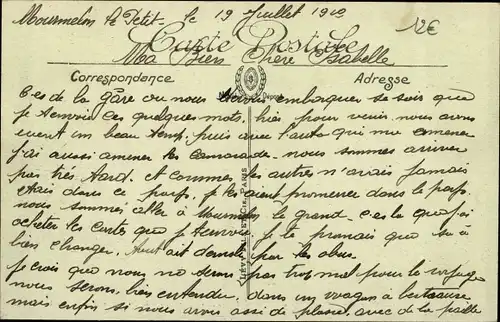 Mourmelon le Petit le 19 Juillet 19
12€
Carte Postale
Ma Bien Chère Isabelle
Correspondance
Adresse
C'es de la gare ou nous devons embarquer se soir que
je t'envoir ces quelques mots, hier pour venir nous avons
un beau temp, puis avec l'auto qui me
j'ai aussi amener les camarade nous sommes arriver
pas très tard. et commes les autres n'avais jamais
étais dans ce pays, je les aient promener dans le pays
nous sommes aller à Mourmelon le grand c'es la que j'ai
acheter les cartes que je t'envoir je te promais que sa à
bien changer. tout ait demoli par les obus
je crois que nous ne serons pas trop mal pour le voyage
nous serons bien entendu, dans un wagon à bestiause
mais enfin si nous avons assé de place, avec de la paille